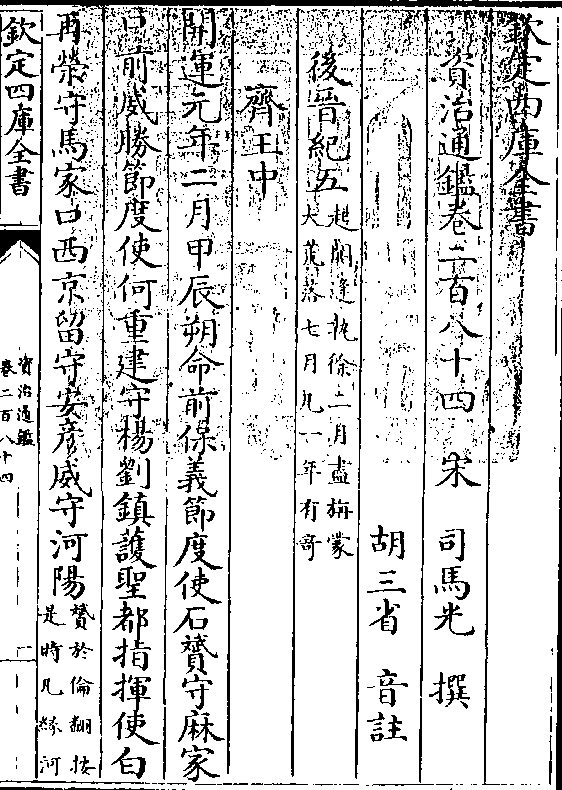 欽定四庫全書
資治通鑑卷二百八十四
宋 司馬光 撰
胡三省 音註
後晉紀五起閼逢執徐二月盡旃蒙
大荒落七月凡一年有奇
齊王中
開運元年二月甲辰朔命前保義節度使石贇守麻家
口前威勝節度使何重建守楊劉鎮護聖都指揮使白
再榮守馬家口西京留守安彥威守河陽贇於倫翻按
是時凡緣河
欽定四庫全書
資治通鑑
卷二百八十四
一